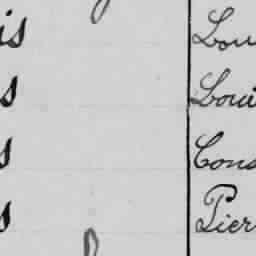 is Lou
s Loui
s Cons
s Pier